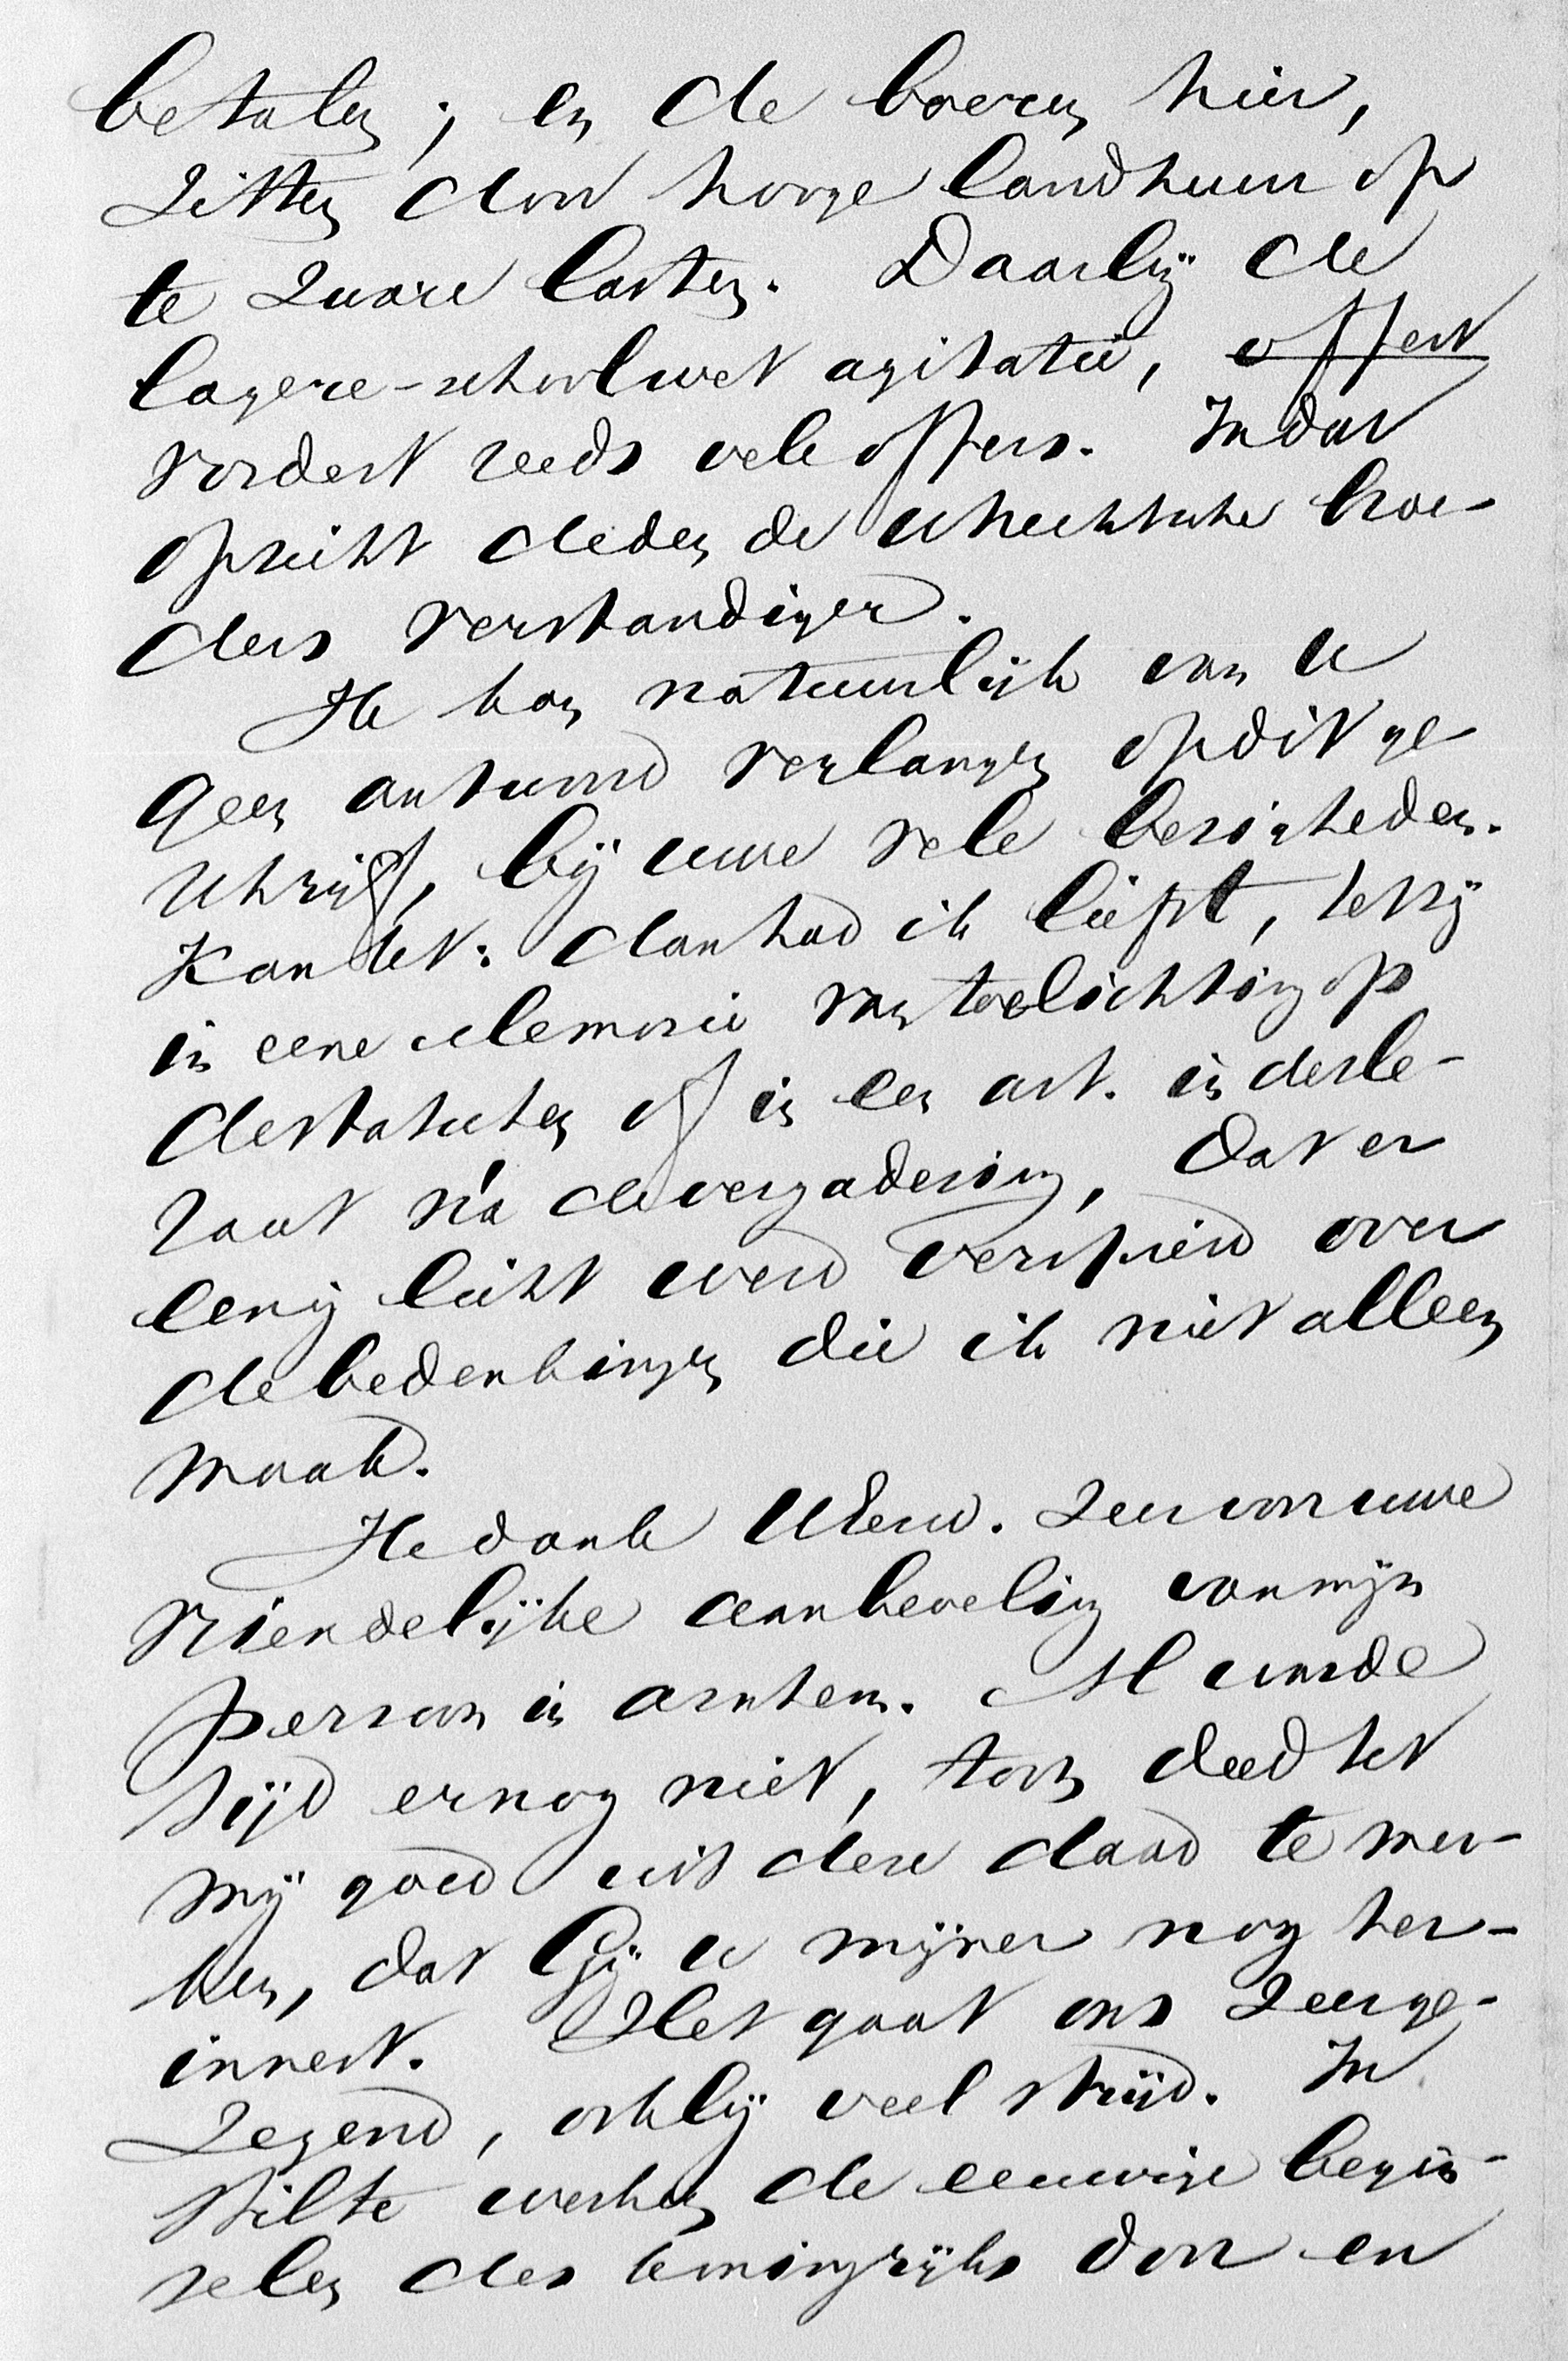 betalen; en de boeren hier,
zitten door hooge landhuur op
te zware lasten. Daarbij de
lagere-schoolwet agitatie, ~~offert~~
vordert reeds vele offers. In dat
opzicht deden de Utrechtsche broe-
ders verstandiger.
Ik kan natuurlijk van U
geen antwoord verlangen op dit ge-
schrijf, bij uwe vele bezigheden.
Kan het: dan had ik liefst, hetzij
in eene Memorie van toelichting op
de statuten of in een art. in de He-
raut ná de vergadering, dat er
eenig licht werd verspreid over
de bedenkingen die ik niet alleen
maak.
Ik dank UEerw. zeer voor uwe
vriendelijke aanbeveling van mijn
persoon in Arnhem. 'Swerde
tijd er nog niet, toch deed het
mij goed uit deze daad te mer-
ken, dat Gij U mijner nog her-
innert. Het gaat ons zeer ge-
zegend, ook bij veel strijd. In
stilte werken de eeuwige begin-
selen des koningrijks door en